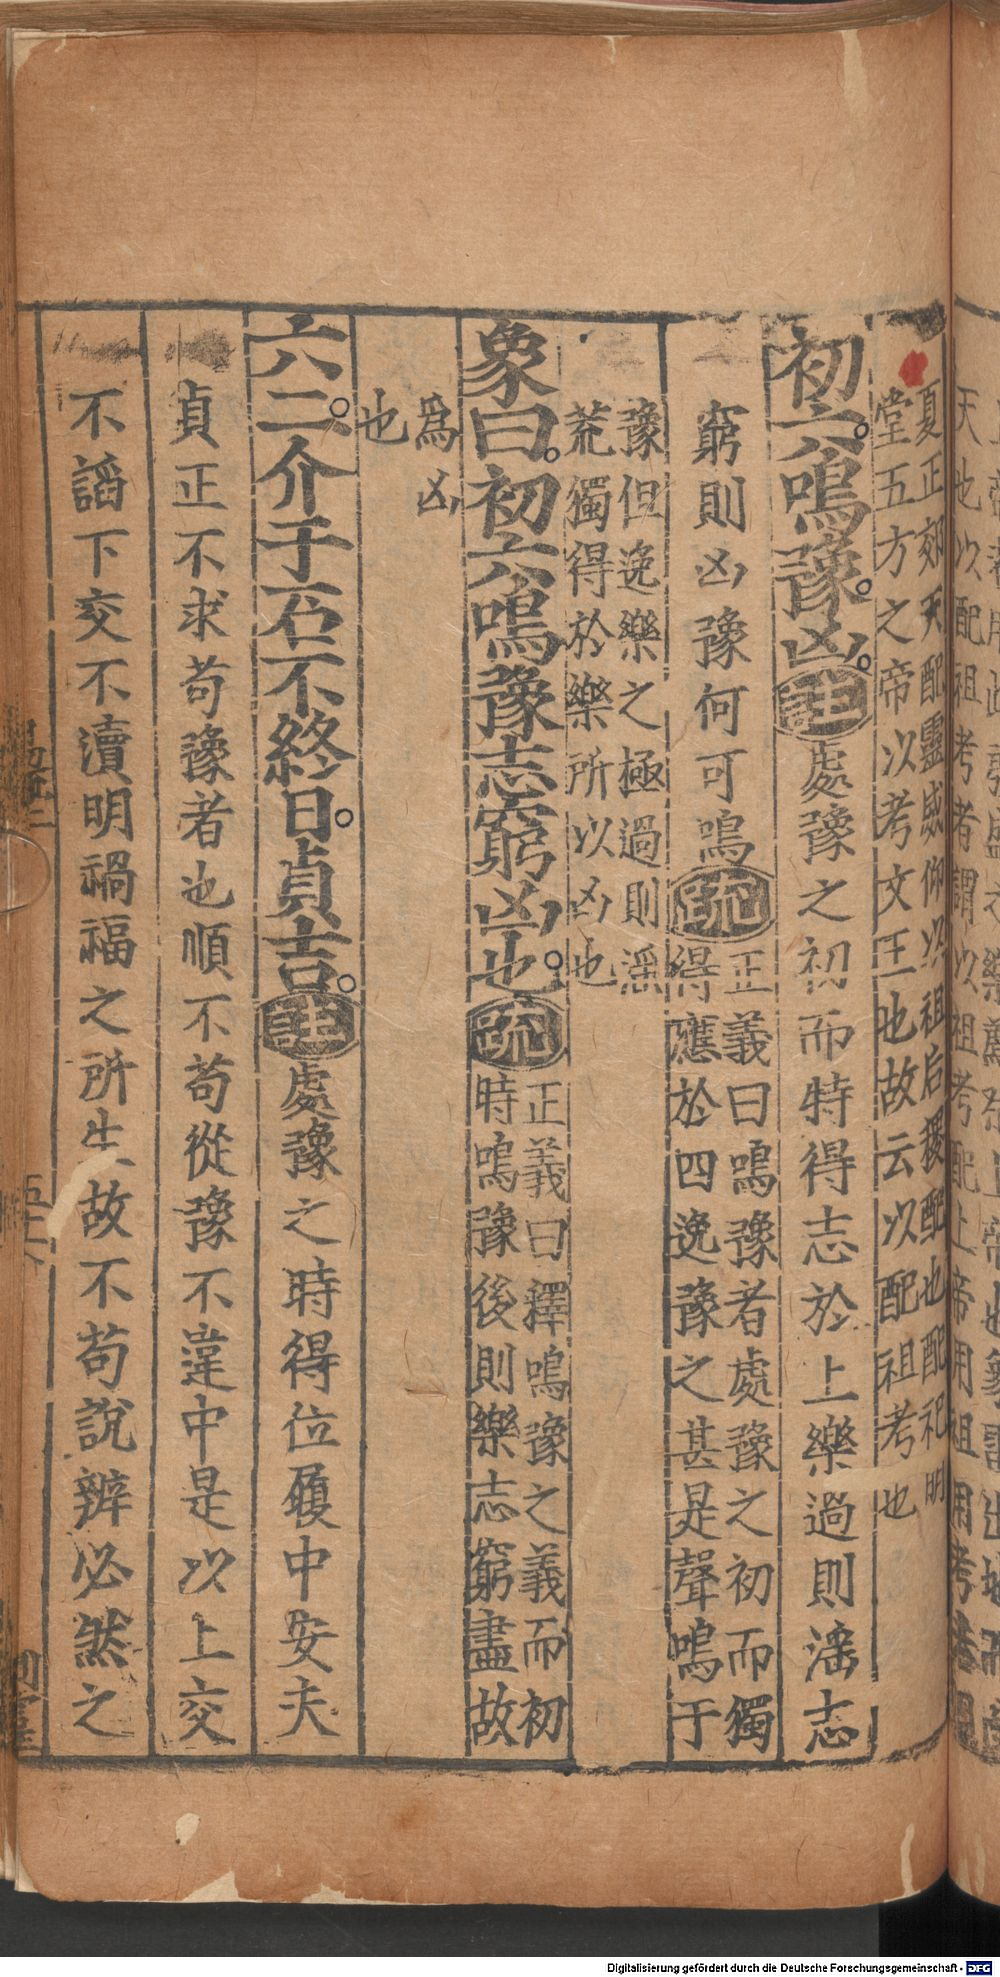 夏正郊天配靈威仰以祖后稷配也配祀明
堂五方之帝以考文王也故云以配祖考也
初六鳴豫凶註處豫之初而特得志於上樂過則淫志
窮則凶豫何可鳴疏正義曰鳴豫者處豫之初而獨
得應於四逸豫之甚是聲鳴于
豫但逸樂之極過則淫
荒獨得於樂所以凶也
象曰初六鳴豫志窮凶也疏正義曰釋鳴豫之義而初
時鳴豫後則樂志窮盡故
爲凶
也
六二介于石不終日貞吉註處豫之時得位履中安夫
貞正不求苟豫者也順不苟從豫不違中是以上交
不謟下交不瀆明禍福之所生故不苟說辨必然之
Digitalisierung gefördert durch die Deutsche Forschungsgemeinschaft - DFG